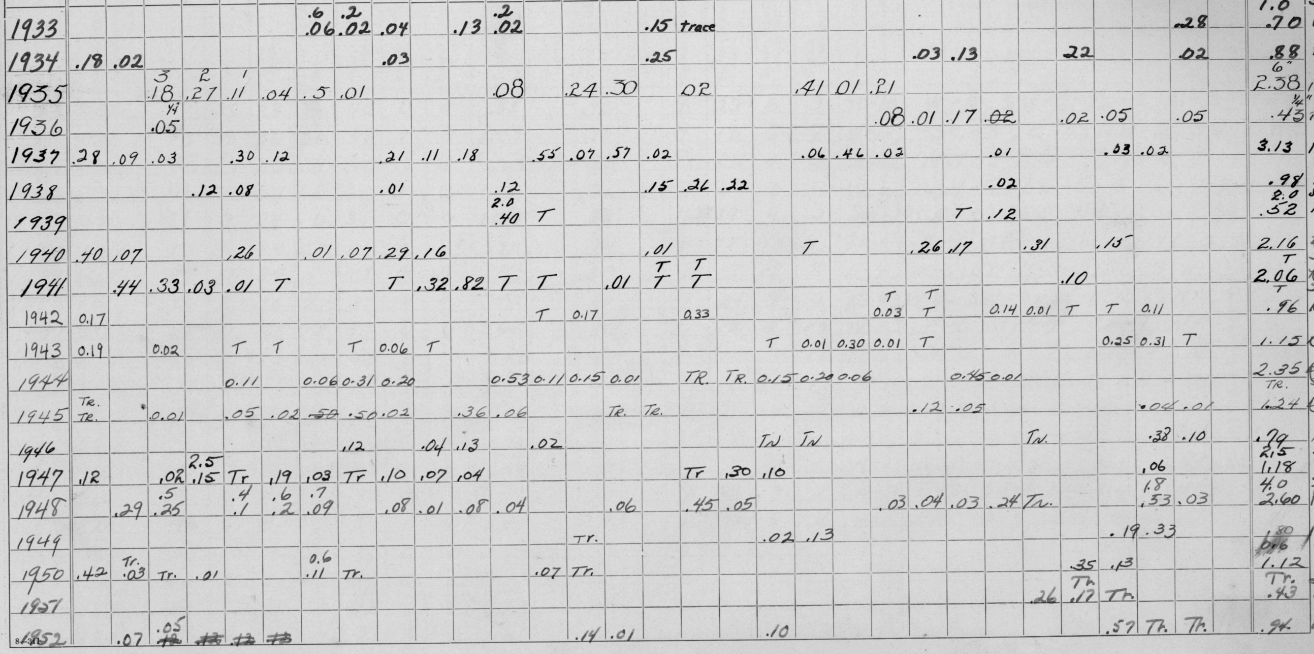 .6 .2 .2 1.0
1933 .06 .02 .04 .13 .02 .15 trace .28 .70
1934 .18 .02 .03 .25 .03 .13 22 .02 .88
3 2 1 6"
1935 .18 .27 .11 .04 .5 .01 .08 .24 .30 .02 .41 .01 .21 2.38
1/4 1/4"
1936 .05 .08 .01 .17 .02 .02 .05 .05 .43
1937 .28 .09 .03 .30 .12 .21 .11 .18 .55 .07 .57 .02 .06 .46 .02 .01 .03 .02 3.13
1938 .12 .08 .01 .12 .15 .26 .22 .02 .98
2.0 2.0
1939 .40 T T .12 .52
1940 .40 .07 .26 .01 .07 .29 .16 .01 T .26 .17 .31 .15 2.16
T T T
1941 .44 .33 .03 .01 T T .32 .82 T T .01 T T .10 2.06
T T T
1942 0.17 T 0.17 0.33 0.03 T 0.14 0.01 T T 0.11 .96
1943 0.19 0.02 T T T 0.06 T T 0.01 0.30 0.01 T 0.25 0.31 T 1.15
1944 0.11 0.06 0.31 0.20 0.53 0.11 0.15 0.01 TR. TR. 0.15 0.20 0.06 0.45 0.01 2.35
TR. TR.
1945 TR. 0.01 .05 .02 .50 .50 .02 .36 .06 TR. TR. .12 .05 .04 .01 1.24
1946 .12 .04 .13 .02 TN TN TN. .38 .10 .79
2.5 2.5
1947 .12 .02 .15 Tr .19 .03 Tr .10 .07 .04 Tr .30 .10 .06 1.18
.5 .4 .6 .7 1.8 4.0
1948 .29 .25 .1 .2 .09 .08 .01 .08 .04 .06 .45 .05 .03 .04 .03 .24 TN. .53 .03 2.60
1949 Tr. .02 .13 .19 .33
Tr. 0.6 0.6
1950 .42 .03 Tr. .01 .11 Tr. .07 Tr. .35 .13 1.12
Tr. Tr.
1951 .26 .17 Tr. .43
.05
1952 .07 .14 .01 .10 .57 Tr. Tr. .94